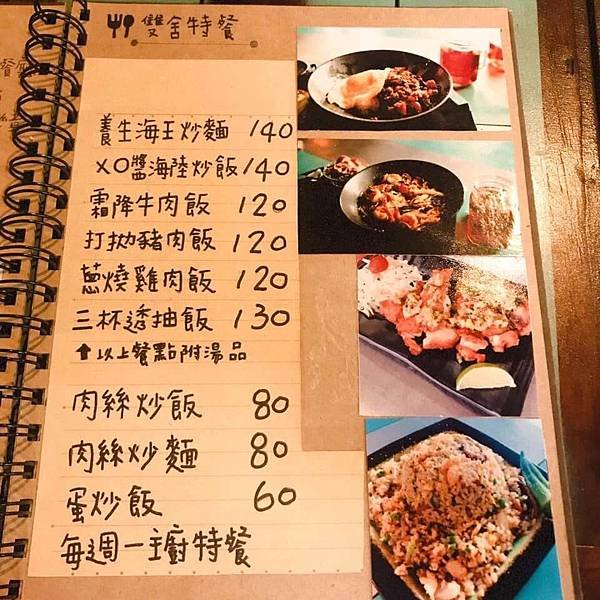 雙舍特餐
養生海王炒麵 140
XO醬海陸炒飯 140
霜降牛肉飯 120
打拋豬肉飯 120
蔥燒雞肉飯 120
三杯透抽飯 130
⬆以上餐點附湯品
肉絲炒飯 80
肉絲炒麵 80
蛋炒飯 60
每週一主廚特餐